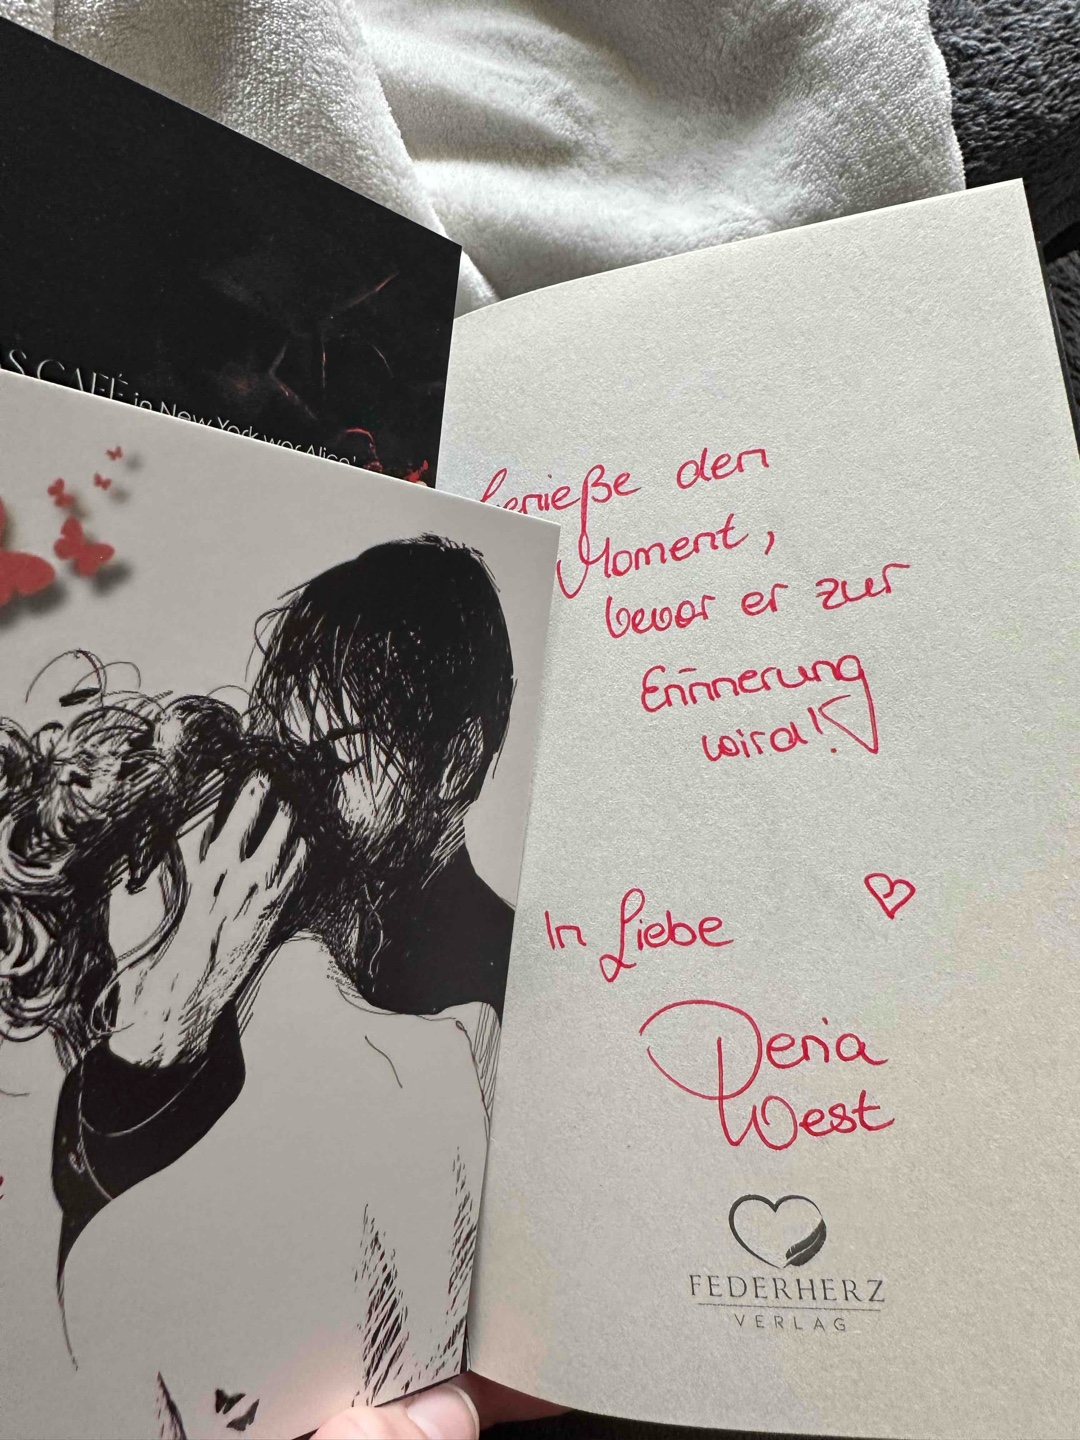 CAFÉ in New York war Alice'
Genieße den
Moment,
bevor er zur
Erinnerung
wird!
In Liebe
Deria
West
FEDERHERZ
VERLAG